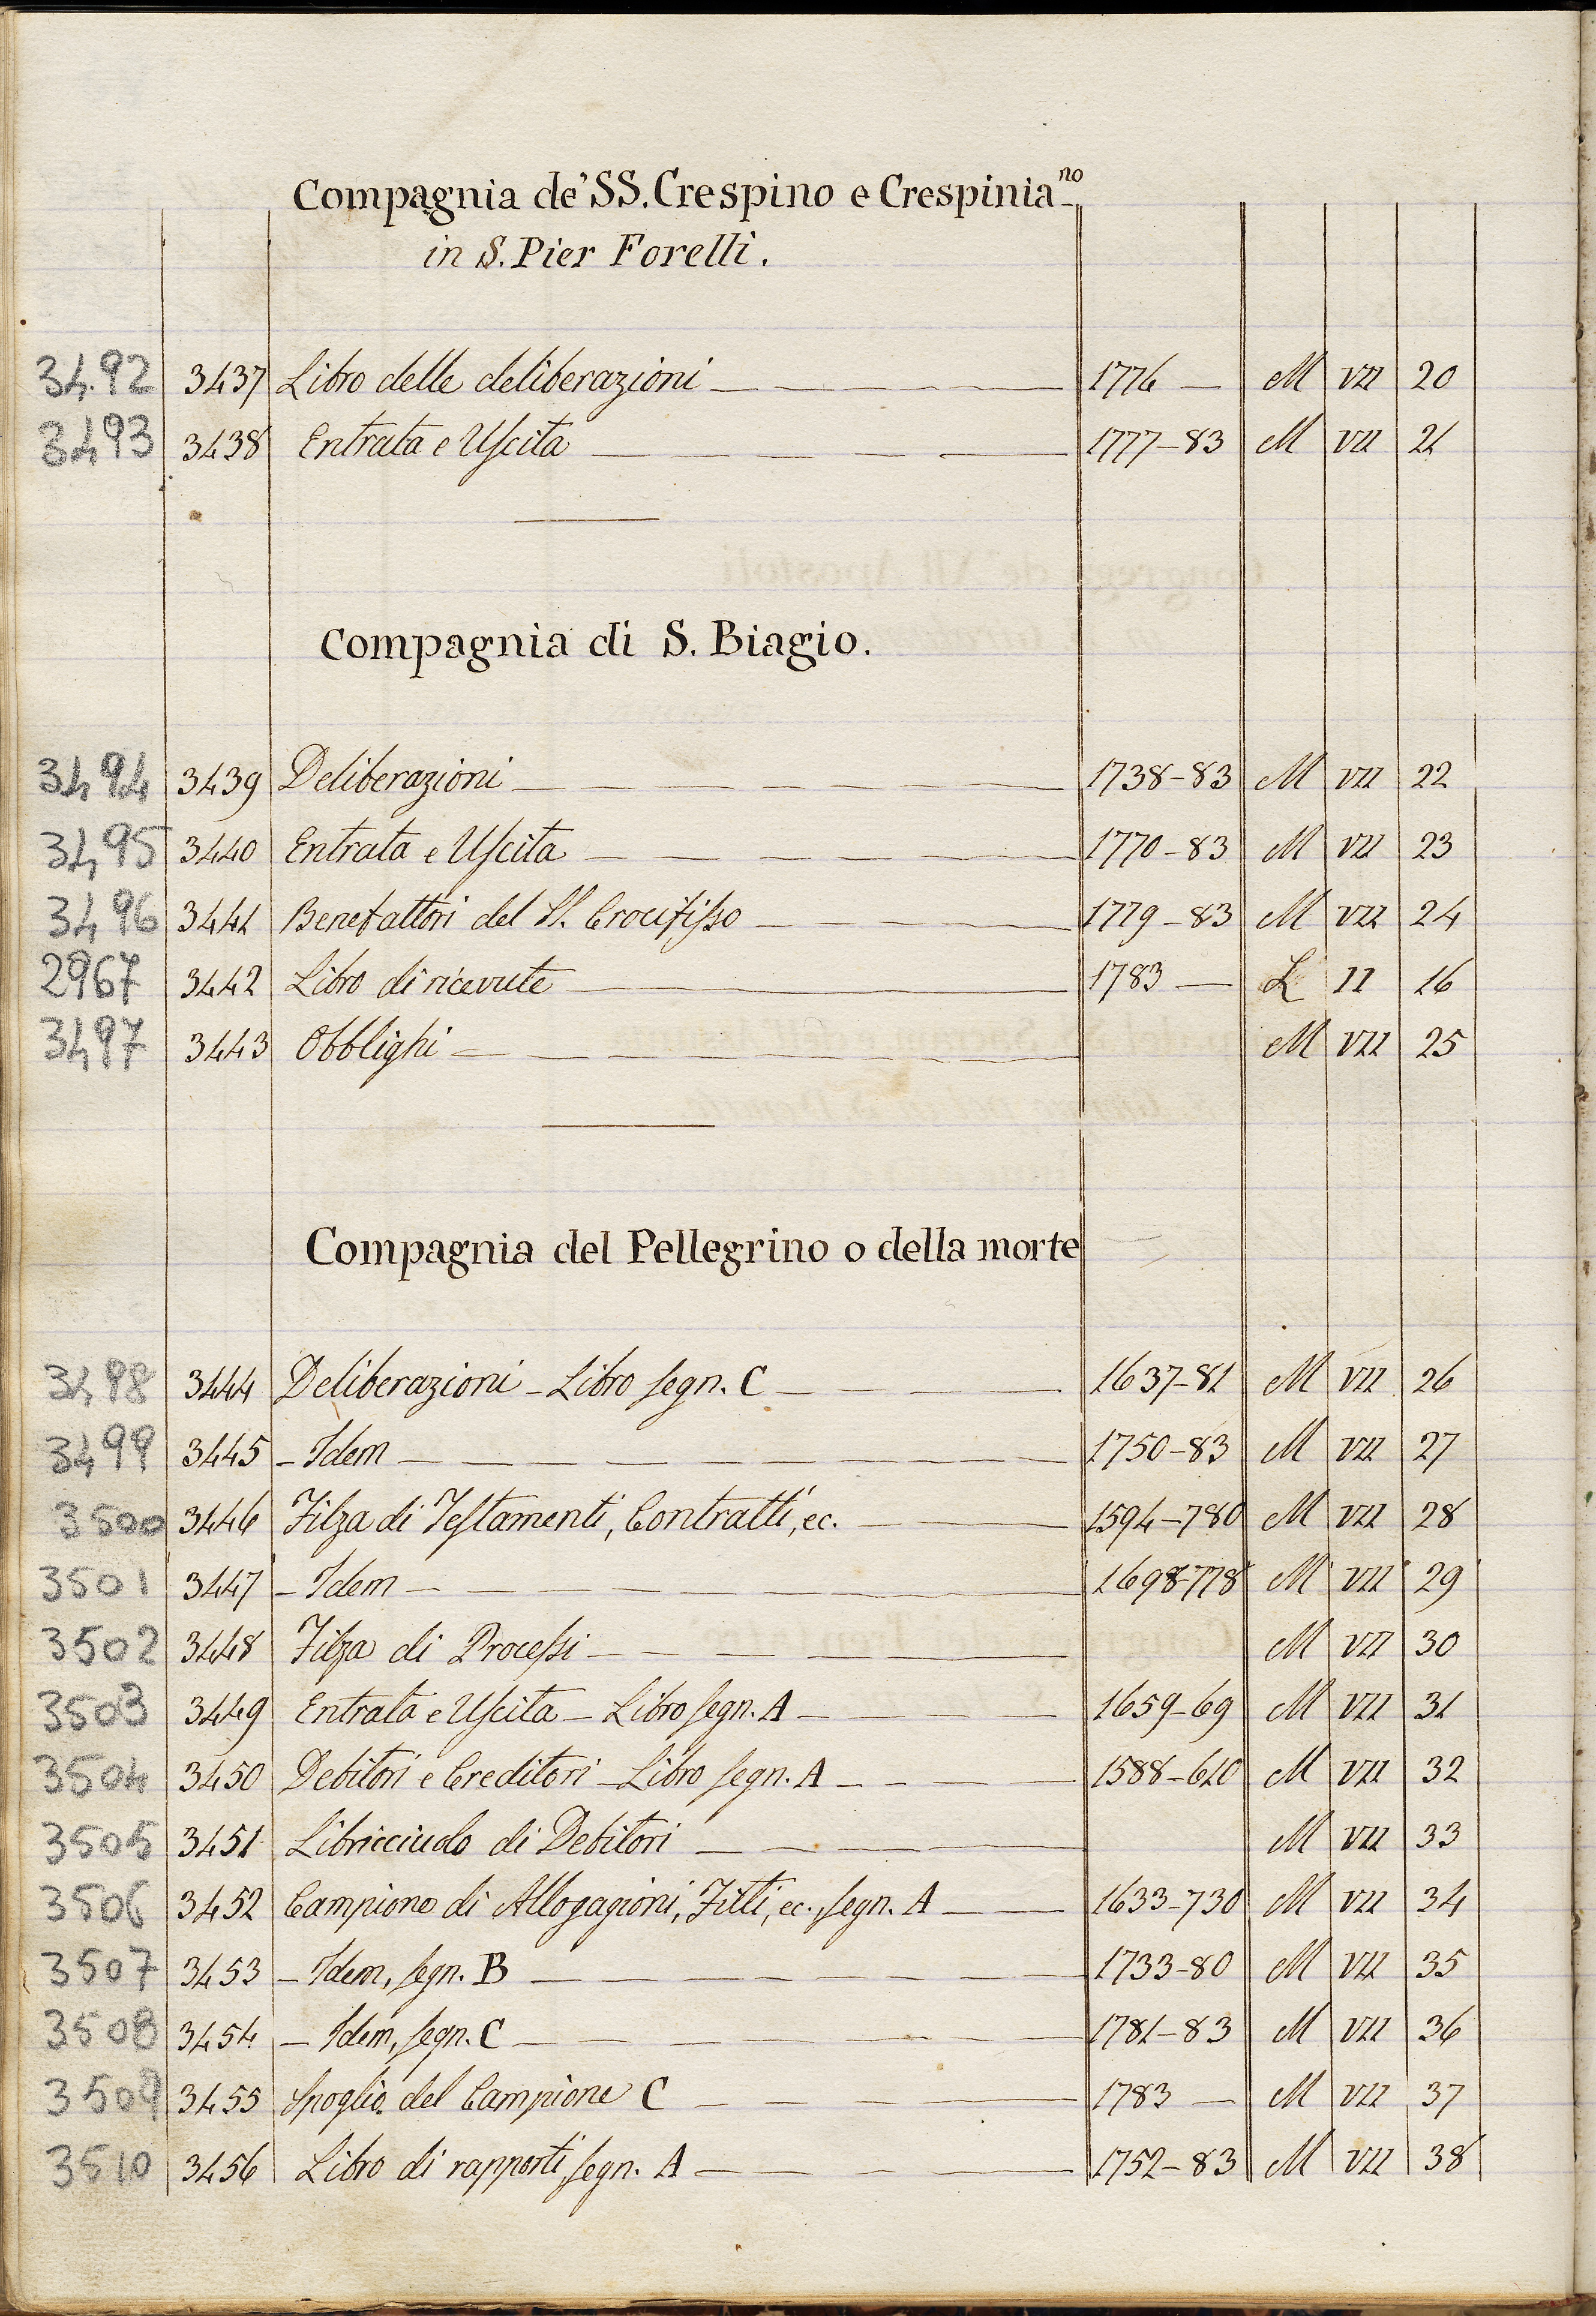 Compagnia de' SS. Crespino e Crespinia^no
in S. Pier Forelli.
3492 3437 Libro delle deliberazioni 1776 — M VII 20
3493 3438 Entrata e Uſcita 1777-83 M VII 21
Compagnia di S. Biagio.
3494 3439 Deliberazioni 1738-83 M VII 22
3495 3440 Entrata e Uſcita 1770-83 M VII 23
3496 3441 Benefattori del SS. Crocifiſso 1779-83 M VII 24
2967 3442 Libro di ricevute 1783 — L II 16
3497 3443 Obblighi M VII 25
Compagnia del Pellegrino o della morte
3498 3444 Deliberazioni - Libro ſegn. C 1637-81 M VII 26
3499 3445 - Idem 1750-83 M VII 27
3500 3446 Filza di Teſtamenti, Contratti, ec. 1594-780 M VII 28
3501 3447 - Idem 1698-778 M VII 29
3502 3448 Filza di Proceſsi M VII 30
3503 3449 Entrata e Uſcita - Libro ſegn. A 1659-69 M VII 31
3504 3450 Debitori e Creditori - Libro ſegn. A 1588-610 M VII 32
3505 3451 Libricciuolo di Debitori M VII 33
3506 3452 Campione di Allogagioni, Fitti, ec., ſegn. A 1633-730 M VII 34
3507 3453 - Idem, ſegn. B 1733-80 M VII 35
3508 3454 - Idem, ſegn. C 1781-83 M VII 36
3509 3455 Spoglio del Campione C 1783 — M VII 37
3510 3456 Libro di rapporti, ſegn. A 1752-83 M VII 38